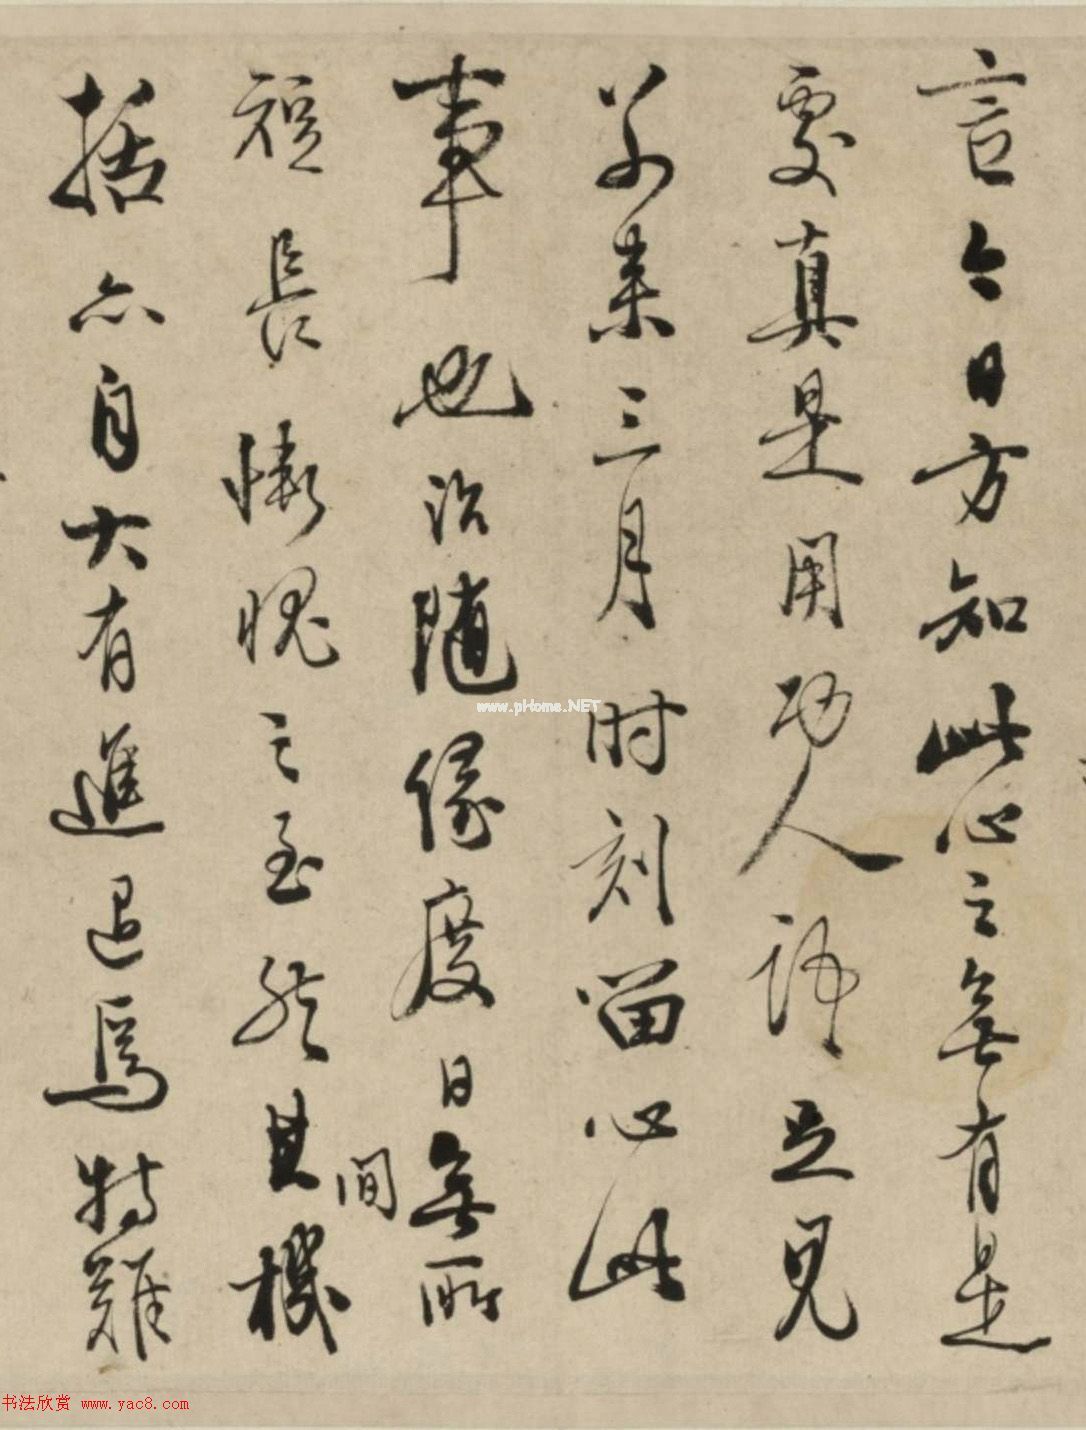 言今日方知此心之無有是
處真是用功人語且見
前來三月時刻留心此
事也治隨緣度日無所
短長慚愧之至然其間機
括亦自大有進退焉特難
www.pHome.NET
书法欣赏 www.yac8.com